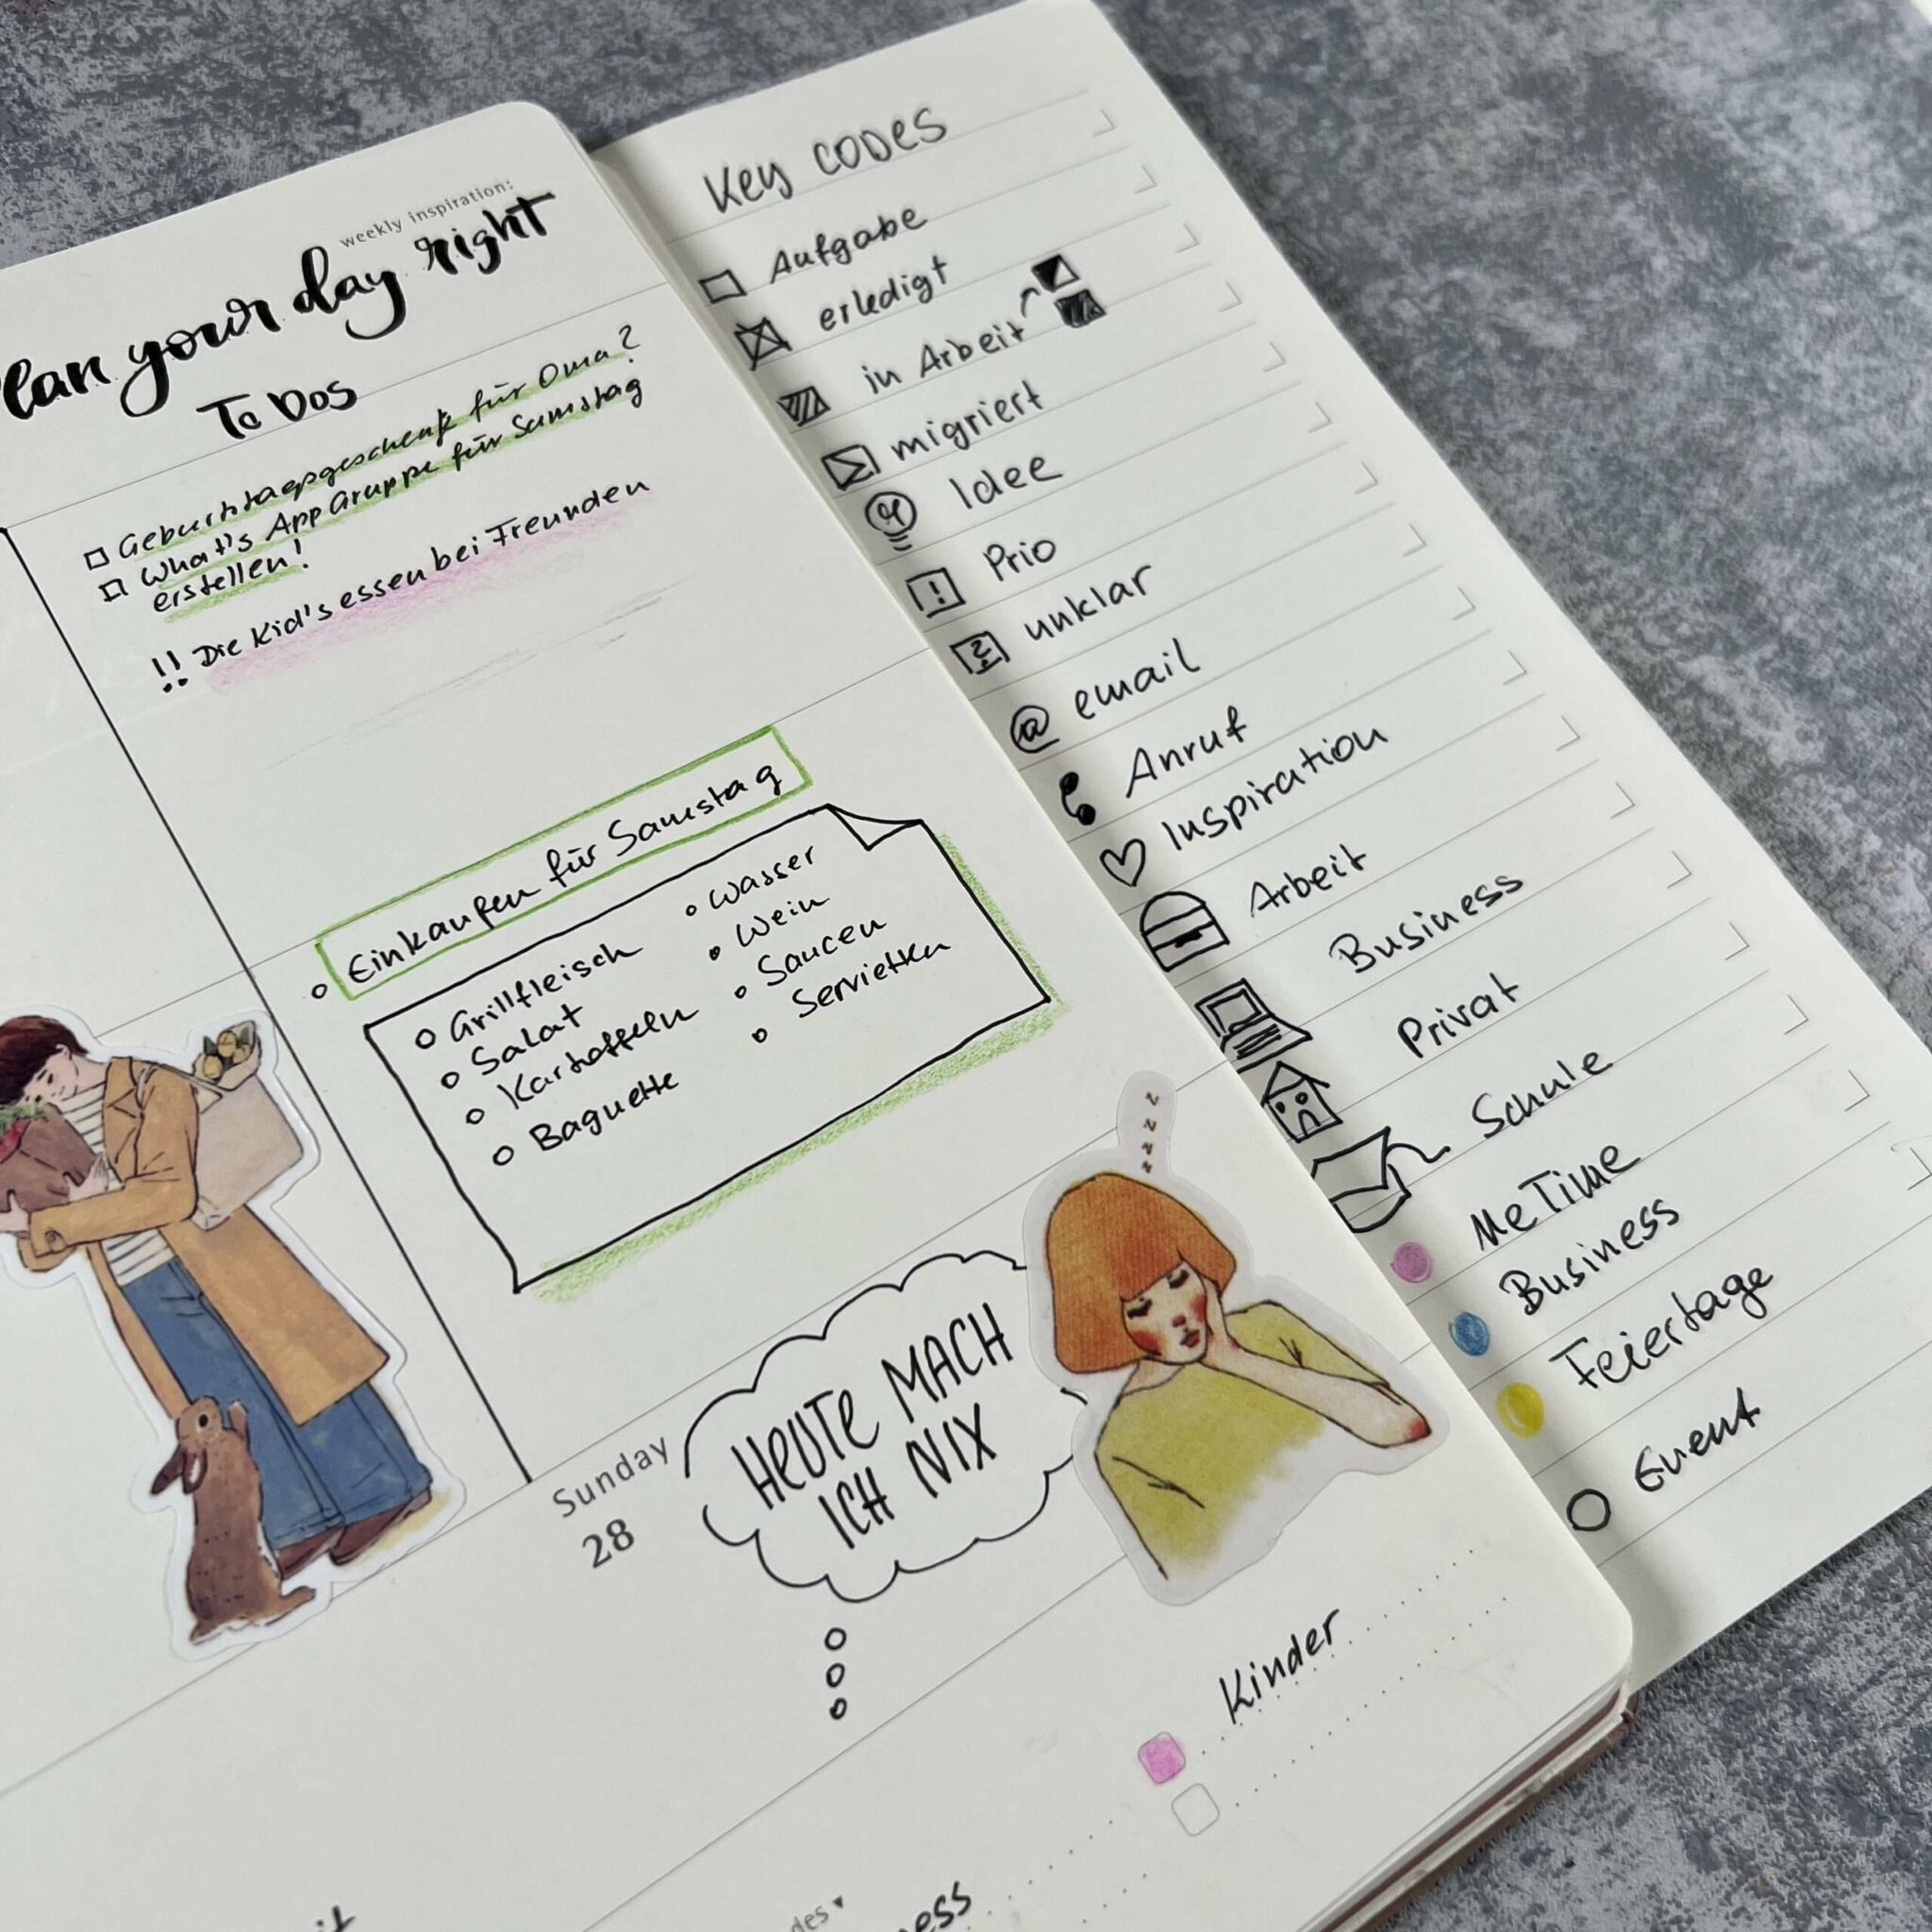 weekly inspiration:
lan your day right
To Dos
Geburtstagsgeschenk für Oma?
What's App Gruppe für Samstag
erstellen!
!! Die Kid's essen bei Freunden
Einkaufen für Samstag
Grillfleisch
Salat
Kartoffeln
Baguette
Wasser
Wein
Saucen
Servietten
zzzz
Sunday
28
HEUTE MACH
ICH NIX
Kinder
Key CODES
Aufgabe
erledigt
in Arbeit
migriert
Idee
! Prio
? unklar
@ email
Anruf
Inspiration
Arbeit
Business
Privat
Schule
MeTime
Business
Feiertage
Event